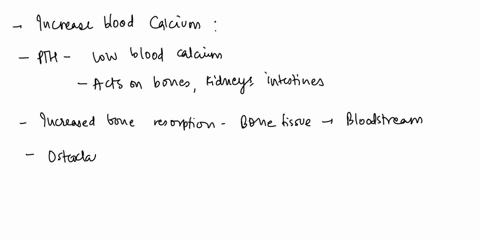 → Increase blood Calcium :
- PTH - Low blood calcium
- Acts on bones, kidneys intestines
- Increased bone resorption - Bone tissue → Bloodstream
- Ostocla